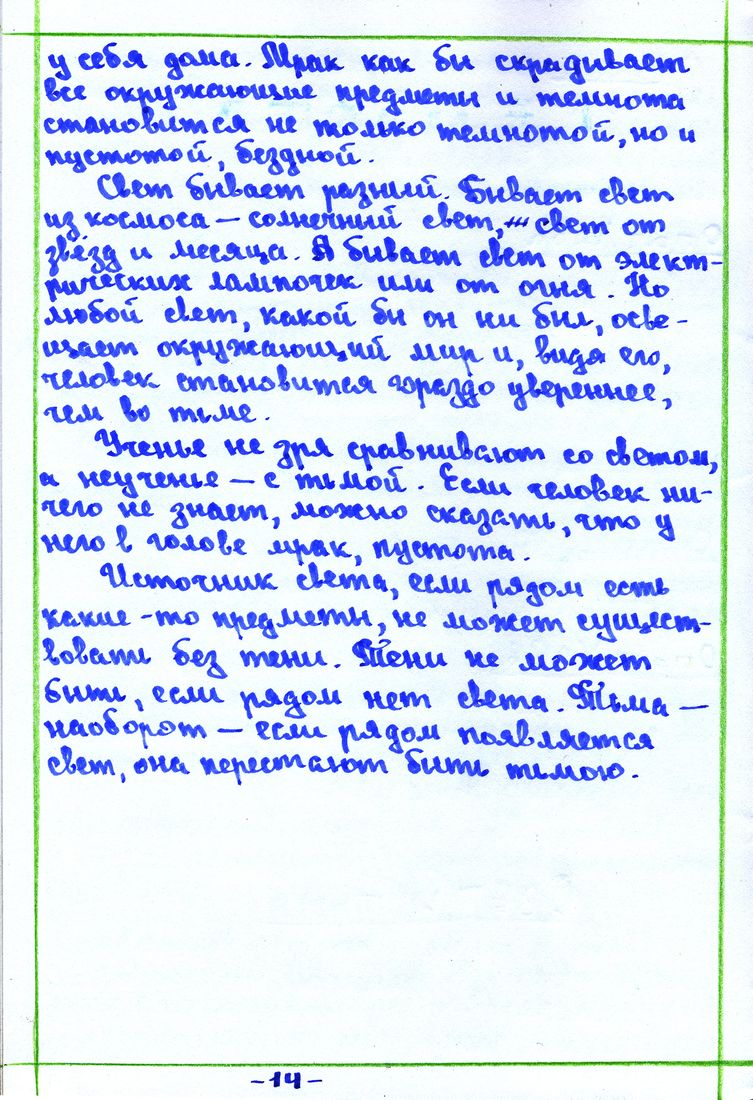 у себя дома. Мрак как бы скрадывает
все окружающие предметы и темнота
становится не только темнотой, но и
пустотой, бездной.
Свет бывает разный. Бывает свет
из космоса — солнечный свет, свет от
звёзд и месяца. А бывает свет от элект-
рических лампочек или от огня. Но
любой свет, какой бы он ни был, осве-
щает окружающий мир и, видя его,
человек становится гораздо увереннее,
чем во тьме.
Ученье не зря сравнивают со светом,
а неученье — с тьмой. Если человек ни-
чего не знает, можно сказать, что у
него в голове мрак, пустота.
Источник света, если рядом есть
какие-то предметы, не может сущест-
вовать без тени. Тени не может
быть, если рядом нет света. Тьма —
наоборот — если рядом появляется
свет, она перестают быть тьмою.
-14-